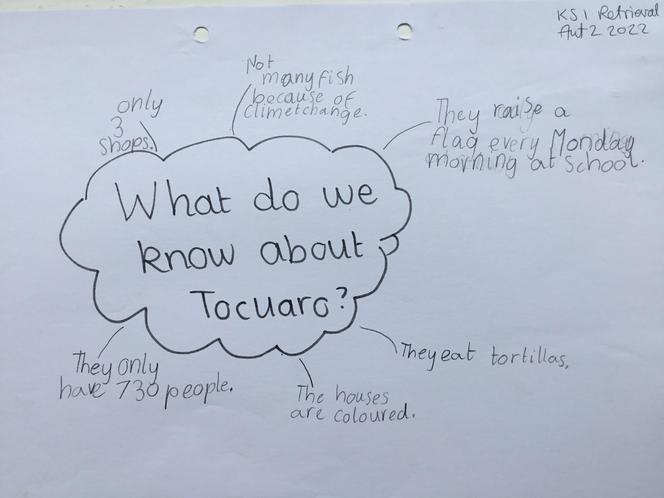 KS1 Retrieval
Aut 2 2022
Not
many fish
because of
climetchange.
only
3
shops.
They raise a
flag every Monday
morning at school.
What do we
know about
Tocuaro?
They eat tortillas.
They only
have 730 people.
The houses
are coloured.